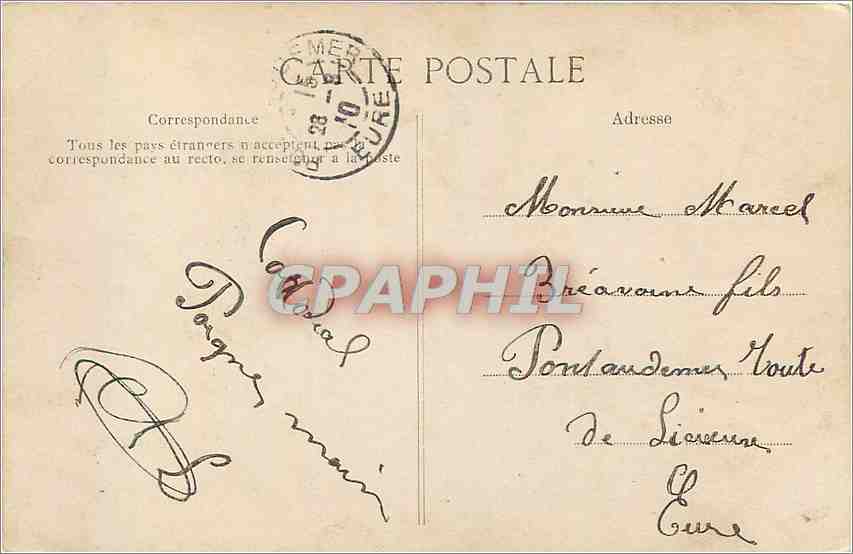 CARTE POSTALE
Correspondance
Tous les pays étrangers n'acceptent pas la
correspondance au recto, se renseigner à la poste
Adresse
28
10
EURE
CPAPHIL
Cordial
Poigne main
Monsieur Marcel
Bréavoine fils
Pontaudemer Route
de Lisieux
Eure